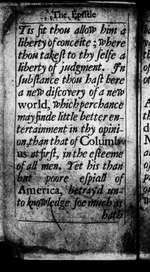 The Epistle
Tis fit thou allow him a
liberty of conceite; where
thou takest to thy selfe a
liberty of judgment. In
substance thou hast here
a new discovery of a new
world, which perchance
may finde little better en-
tertainment in thy opini-
on, than that of Columb
us at first, in the esteeme
of all men. Yet his than
but poore espiall of
America, betrayd un-
to knowledge soe much as
hath